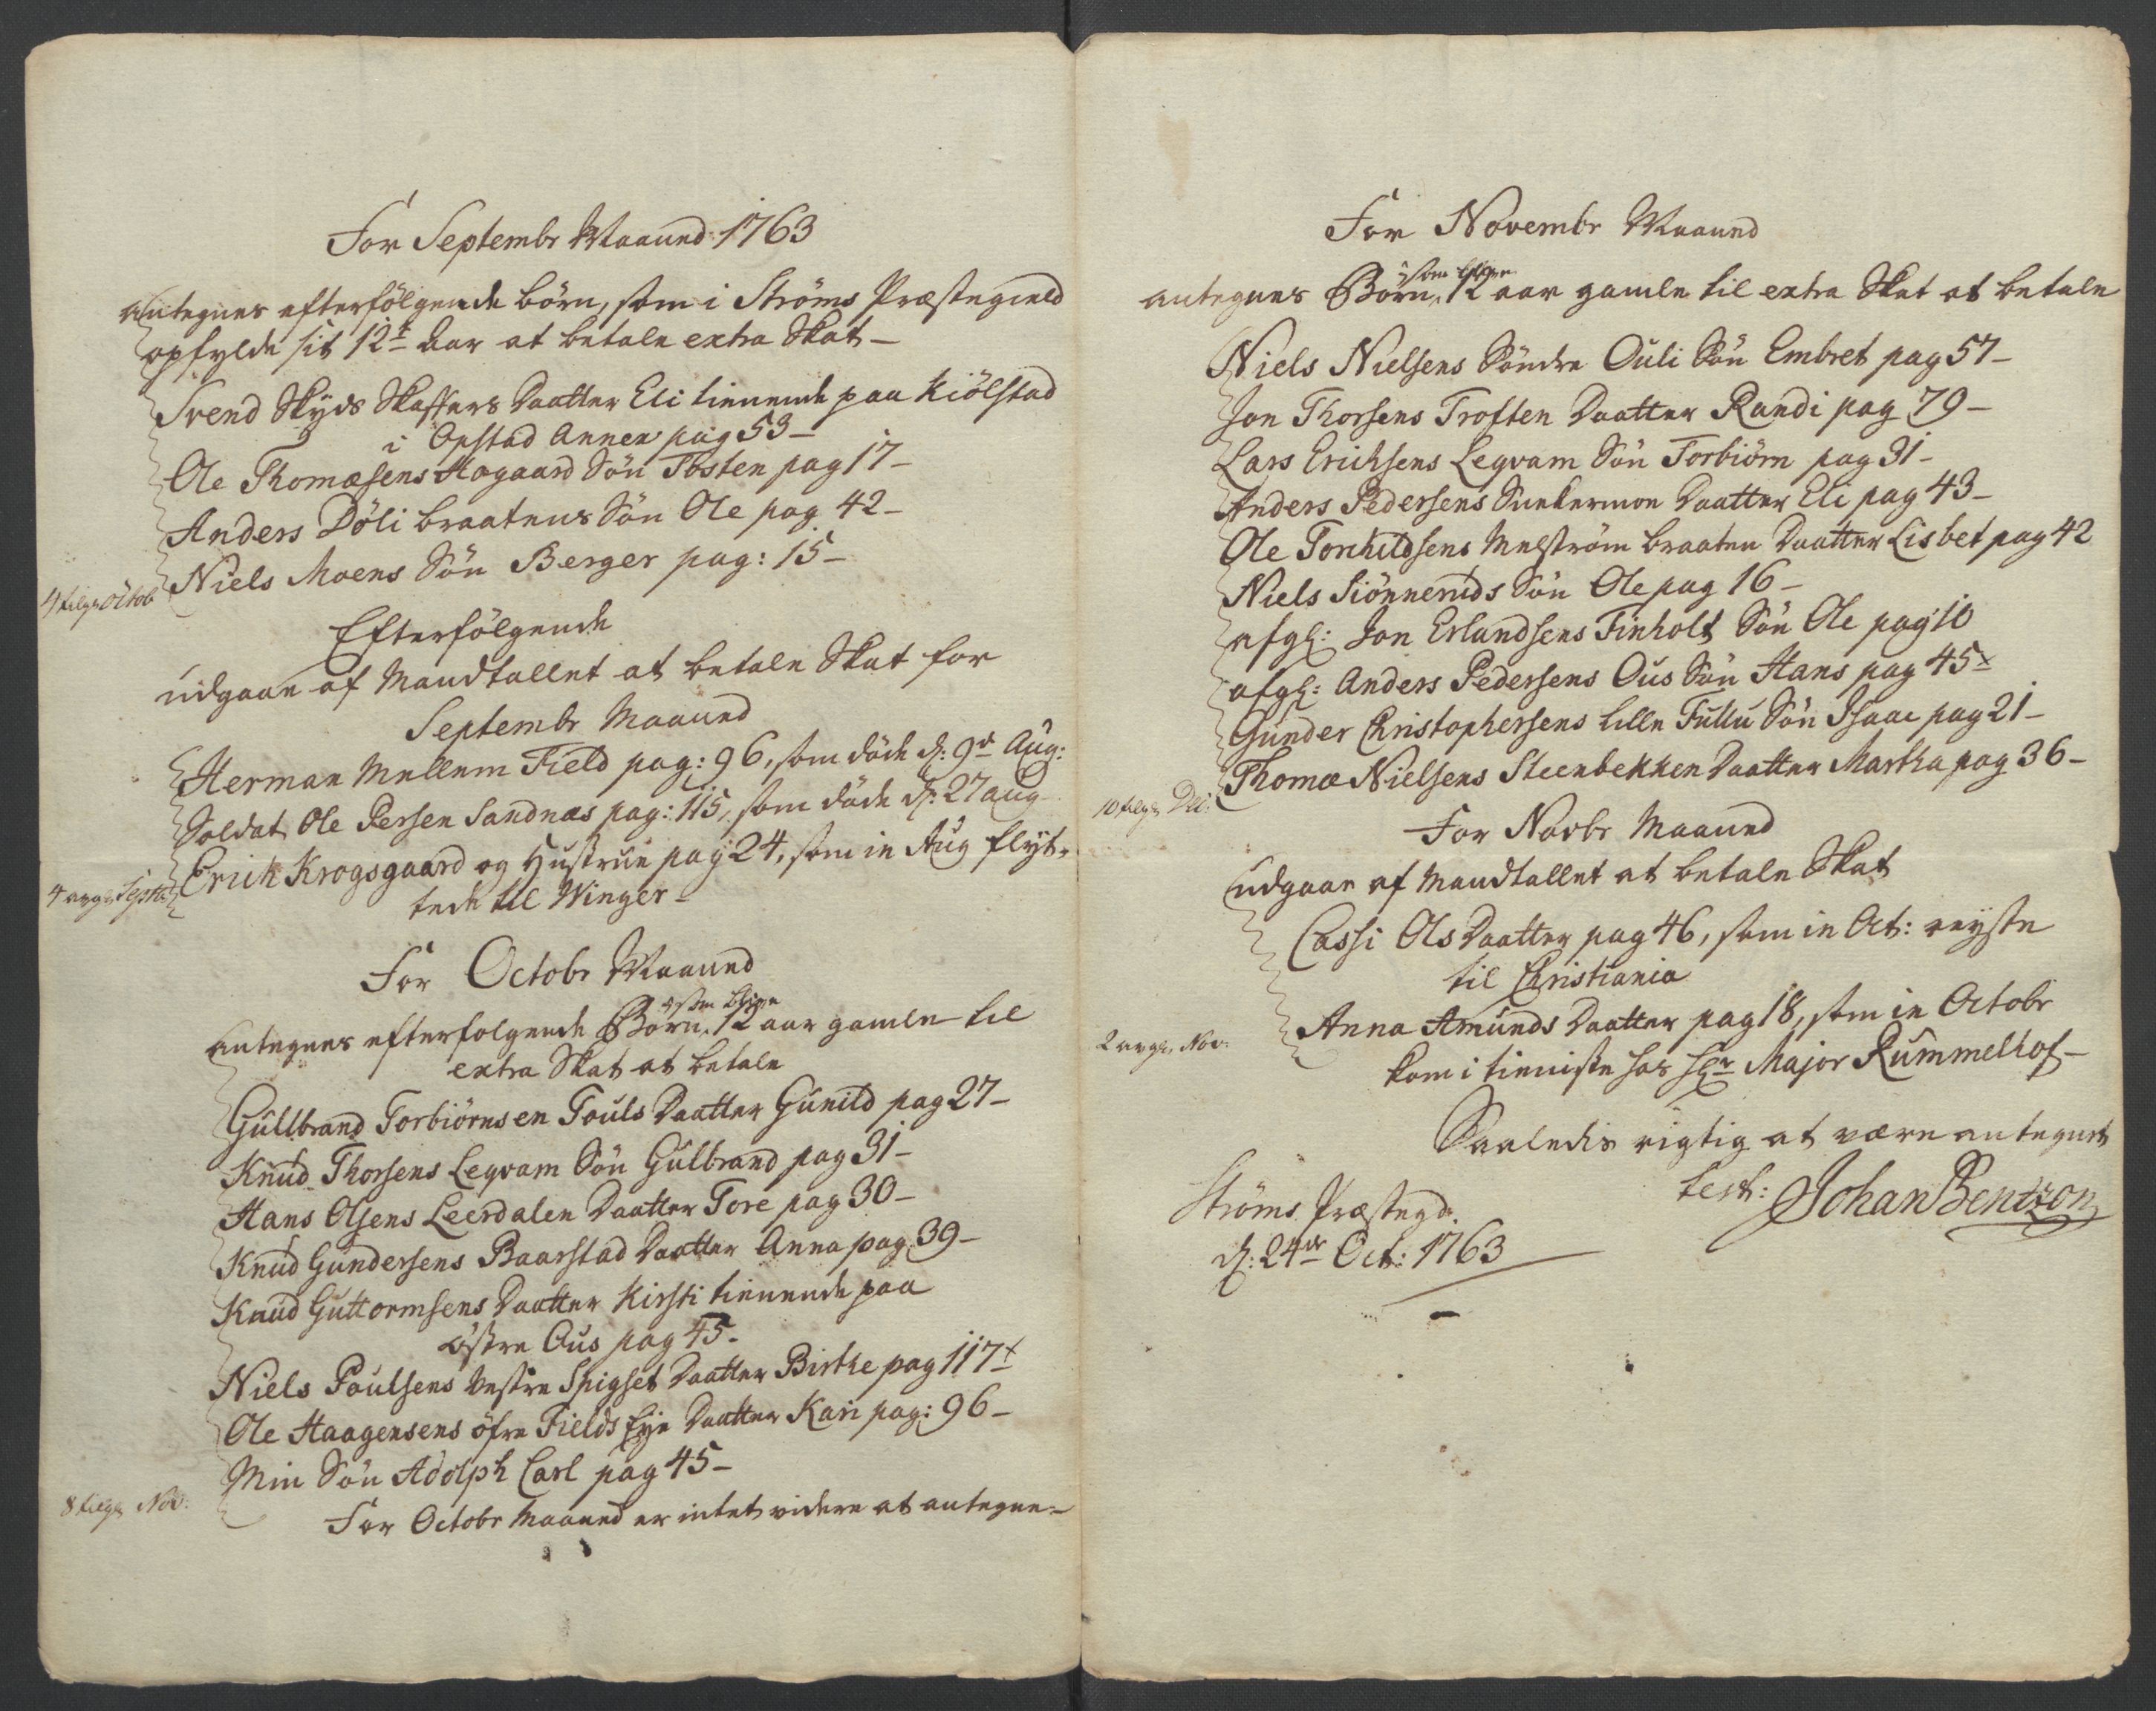 For Septembr Maaned 1763
antegnes efterfölgende börn, som i Ströms Præstegield
opfylde sit 12te Aar at betale extra Skat -
Svend Skyds Skaffers Daatter Eli tienende paa Kiölstad
i Opstad Annex pag 53 -
Ole Thomæsens Hagaard Sön Tosten pag 17 -
Anders Döli braatens Sön Ole pag 42 -
Niels Moens Sön Berger pag: 15 -
4 tilgr Octob
Efterfölgende
udgaar af Mandtallet at betale Skat for
Septembr Maaned
Herman Mellem Field pag: 96, som döde d: 9de Aug:
Soldat Ole Persen Sandnæs pag: 115, som döde d: 27 aug
Erich Krogsgaard og Hustrue pag 24, som in Aug flyt-
4 avgr Septb
tede til Winger -
For Octobr Maaned
som blive
antegnes efterfolgende Börn, 12 aar gamle til
extra Skat at betale
Gullbrand Torbiörnsen Touls Daatter Gunild pag 27 -
Knud Thorsens Leqvam Sön Gulbrand pag 31 -
Hans Olsens Leerdalen Daatter Tore pag 30 -
Knud Gundersens Baarstad Daatter Anna pag: 39 -
Knud Guttormsens Daatter Kirsti tienende paa
östre Ous pag 45 -
Niels Poulsens Vestre Spigset Daatter Birthe pag 117 x
Ole Haagensens öfre Fields Eye Daatter Kari pag: 96 -
Min Sön Adolph Carl pag 45 -
8 tilgr Nov:
For Octobr Maaned er intet videre at antegne -
For Novembr Maaned
som blive
antegnes Börn, 12 aar gamle til extra Skat at betale
Niels Nielsens Söndre Ouli Sön Embret pag 57 -
Jon Thorsens Trosten Daatter Randi pag 79 -
Lars Erichsens Leqvam Sön Torbiörn pag 31 -
Anders Pedersens Sunkermoe Daatter Eli pag 43 -
Ole Torchildsens Melström braaten Daatter Lisbet pag 42
Niels Siönneruds Sön Ole pag 16 -
afgl: Jon Erlandsens Finholt Sön Ole pag 10
afgl: Anders Pedersens Ous Sön Hans pag 45 x
Gunder Christophersens lille Fullu Sön Isaac pag 21 -
Thomæ Nielsens Steenbekken Daatter Martha pag 36 -
10 tilgr Dec:
For Novbr Maaned
udgaar af Mandtallet at betale Skat
Cassi Ols Daatter pag 46, som in Oct: reyste
til Christiania
Anna Amunds Daatter pag 18, som in Octobr
2 avgr Nov:
kom i tienniste hos Hr Major Rummelhof -
Saaledis rigtig at være antegnet
test: Johan Bentzon
Ströms Præstegd.
d: 24de Oct: 1763